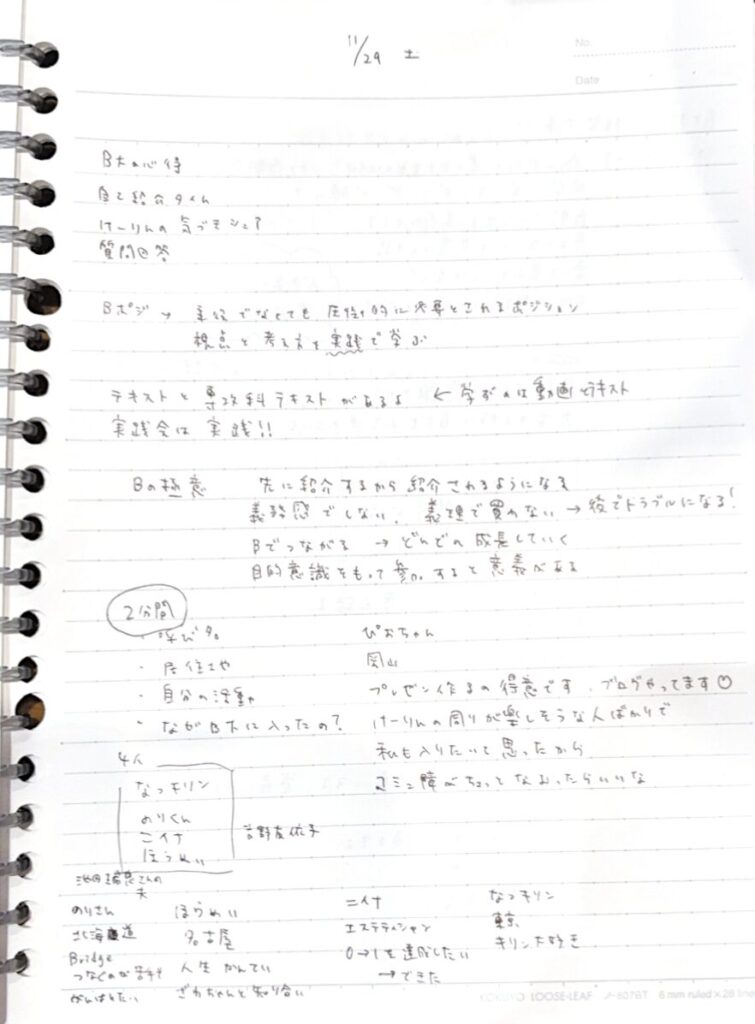 11/29 土
No.
Date
B大の心得
自己紹介タイム
けーりんの気づきシェア
質問回答
Bポジ → 主役でなくても、圧倒的に必要とされるポジション
視点と考え方を実践で学ぶ
テキストと専攻科テキストがあるよ ← 学ぶのは動画とテキスト
実践会は実践!!
Bの極意 先に紹介するから紹介されるようになる
義務感でしない、義理で買わない → 後でトラブルになる!
Bでつながる → どんどん成長していく
目的意識をもって参加すると意義がある
2分間
・呼び名 ぴおちゃん
・居住地 岡山
・自分の活動 プレゼン作るの得意です、ブログやってます♡
・なぜB大に入ったの? けーりんの周りが楽しそうな人ばかりで
私も入りたいて思ったから
コミュ障がちょっとなおったらいいな
4人
なっキリン
のりくん
ニイナ
ほうめい
吉野友依子
池田さんの
夫
のりさん
北海道
Bridge
つなぐのが苦手
がんばりたい
ほうめい
名古屋
人生かんてい
ざわちゃんと知り合い
ニイナ
エステティシャン
0→1を達成したい
→できた
なっキリン
東京
キリン大好き
KOKUYO LOOSE-LEAF ノ-807BT 6mm ruled×28 lines